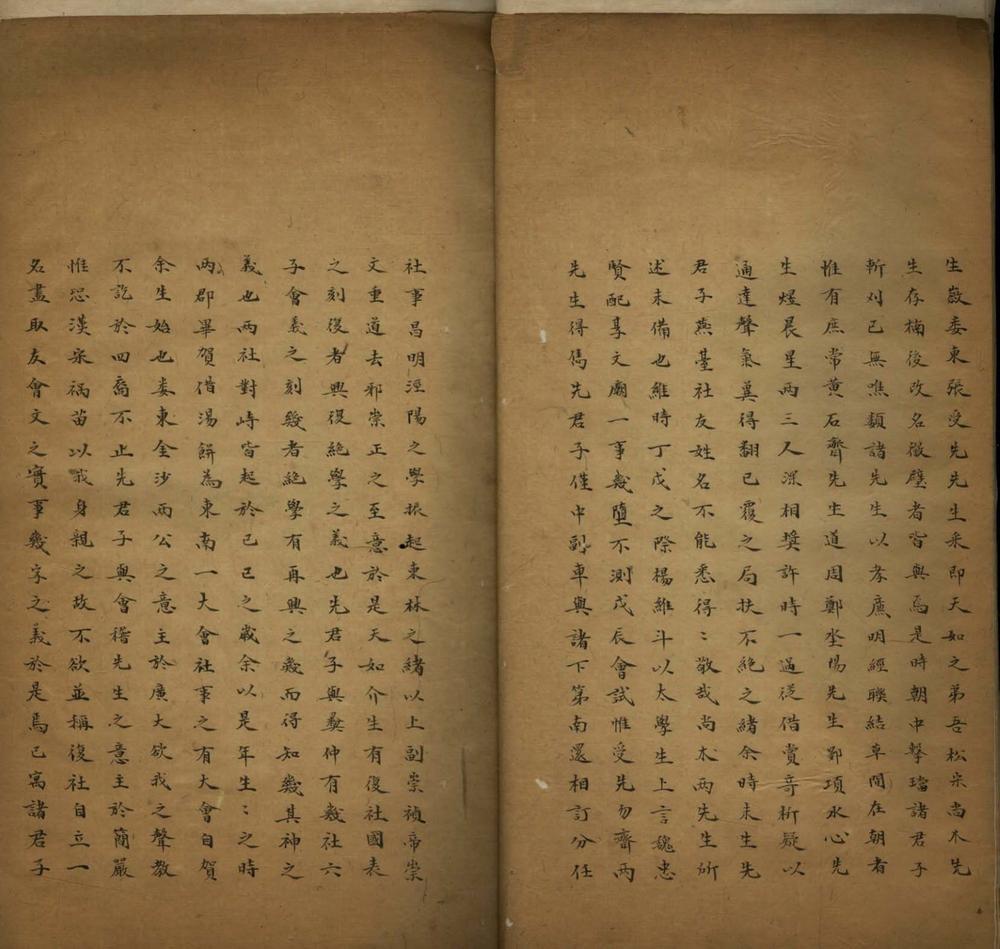 生嶽委東張受先先生采即天如之弟吾松宋尚木先
生存楠後改名徵璧者皆與焉是時朝中擊璫諸君子
斬刈已無噍類諸先生以孝廉明經聯結草間在朝者
惟有庶常黄石齊先生道周鄭坐陽先生鄤項水心先
生煜晨星兩三人深相奬許時一過從借賞竒析疑以
通達聲氣冀得翻已覆之局扶不絶之緒余時未生先
君子燕臺社友姓名不能悉得〻敬哉尚木兩先生所
述未備也維時丁戊之際楊維斗以太學生上言魏忠
賢配享文廟一事幾墮不測戊辰會試惟受先勿齊兩
先生得雋先君子僅中副車與諸下第南還相訂分任
社事昌明涇陽之學振起東林之緒以上副崇禎帝崇
文重道去邪崇正之至意於是天如介生有復社國表
之刻復者興復絶學之義也先君子與彝仲有幾社六
子會義之刻幾者絶學有再興之幾而得知幾其神之
義也兩社對峙皆起於己巳之歲余以是年生〻之時
兩郡畢賀借湯餅為東南一大會社事之有大會自賀
余生始也婁東金沙兩公之意主於廣大欲我之聲教
不訖於四裔不止先君子與會稽先生之意主於簡嚴
惟恐漢宋禍苗以我身親之故不欲並稱復社自立一
名盡取友會文之實事幾字之義於是焉已寓諸君子